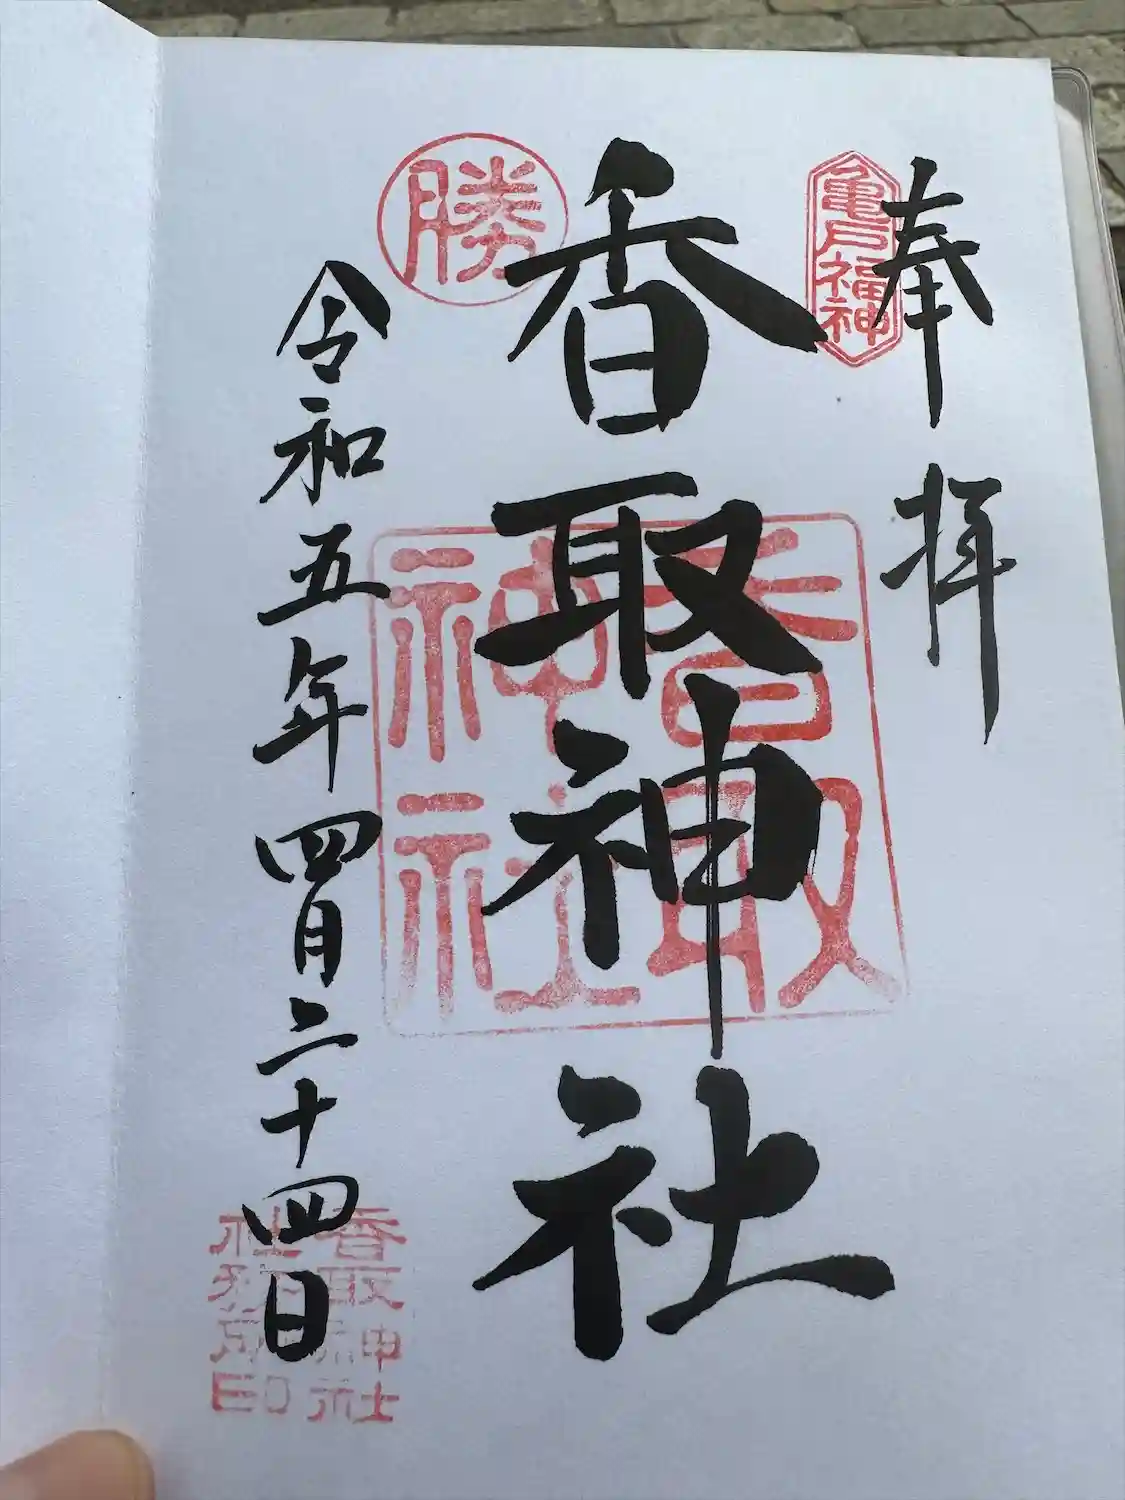 奉拝
亀戸福神
香取神社
香取
神社
勝
令和五年四月二十四日
香取神社
社務所印